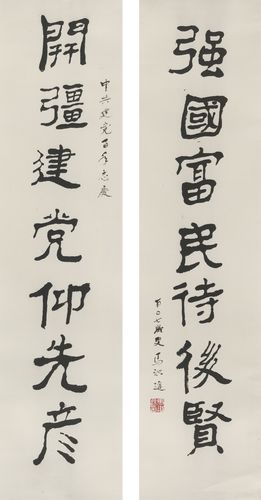 開疆建党仰先彦
中共建党百年志慶
强國富民待後賢
百〇七歲叟馬识途